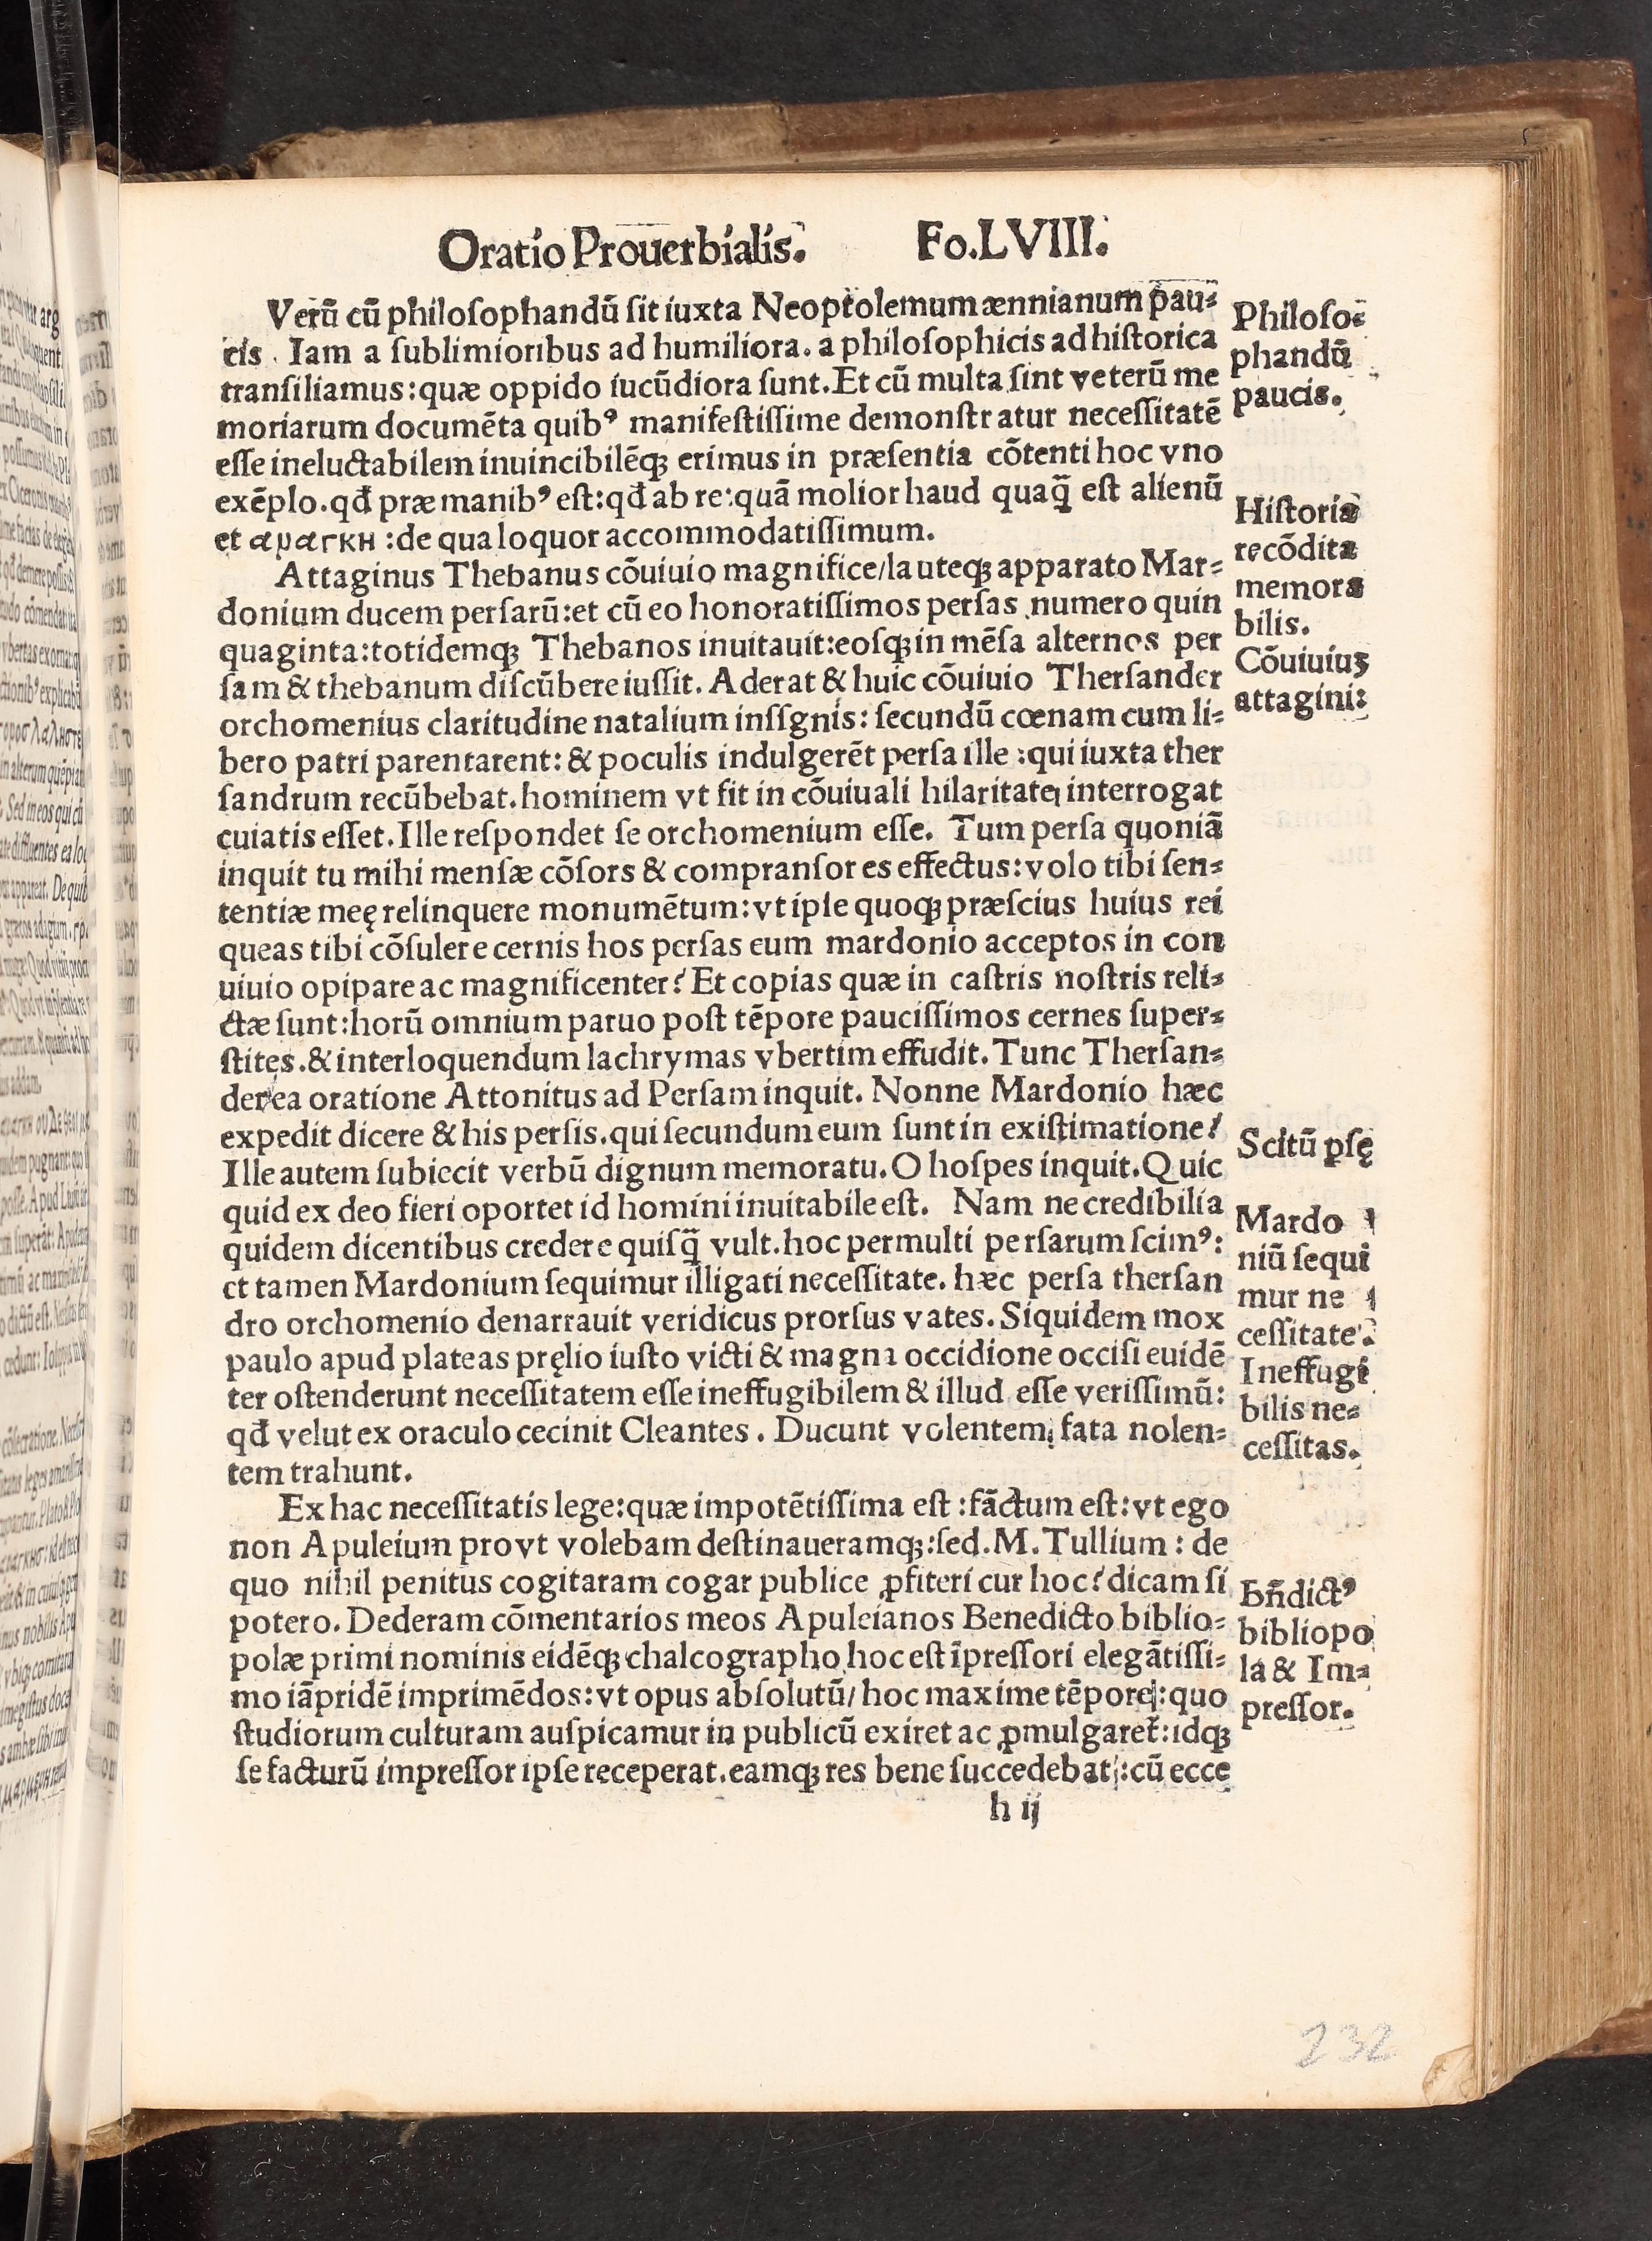 Oratio Prouerbialis. Fo.LVIII.
Verū cū philoſophandū ſit iuxta Neoptolemum ænnianum pau⸗
cis . Iam a ſublimioribus ad humiliora. a philoſophicis ad hiſtorica
tranſiliamus:quæ oppido iucūdiora ſunt.Et cū multa ſint veterū me
moriarum documēta quibꝰ manifeſtiſſime demonſtratur neceſſitatē
eſſe ineluctabilem inuincibilēqꝫ erimus in præſentia cōtenti hoc vno
exēplo.qđ præ manibꝰ eſt:qđ ab re:quā molior haud quaqꝫ̄ eſt alienū
et αμαγκη :de qua loquor accommodatiſſimum.
Attaginus Thebanus cōuiuio magnifice/lauteqꝫ apparato Mar⸗
donium ducem perſarū:et cū eo honoratiſſimos perſas numero quin
quaginta:totidemqꝫ Thebanos inuitauit:eoſqꝫ in mēſa alternos per
ſam & thebanum diſcūbere iuſſit. Aderat & huic cōuiuio Therſander
orchomenius claritudine natalium inſſgnis: ſecundū cœnam cum li⸗
bero patri parentarent: & poculis indulgerēt perſa ille :qui iuxta ther
ſandrum recūbebat.hominem vt fit in cōuiuali hilaritate interrogat
cuiatis eſſet.Ille reſpondet ſe orchomenium eſſe. Tum perſa quoniā
inquit tu mihi menſæ cōſors & compranſor es effectus:volo tibi ſen⸗
tentiæ meę relinquere monumētum:vt ipſe quoqꝫ præſcius huius rei
queas tibi cōſulere cernis hos perſas eum mardonio acceptos in con
uiuio opipare ac magnificenter? Et copias quæ in caſtris noſtris reli⸗
ctæ ſunt:horū omnium paruo poſt tēpore pauciſſimos cernes ſuper⸗
ſtites.& interloquendum lachrymas vbertim effudit.Tunc Therſan⸗
der ea oratione Attonitus ad Perſam inquit. Nonne Mardonio hæc
expedit dicere & his perſis.qui ſecundum eum ſunt in exiſtimatione?
Ille autem ſubiecit verbū dignum memoratu.O hoſpes inquit.Quic
quid ex deo fieri oportet id homini inuitabile eſt. Nam ne credibilia
quidem dicentibus credere quiſqꝫ̄ vult.hoc permulti perſarum ſcimꝰ:
et tamen Mardonium ſequimur illigati neceſſitate. hæc perſa therſan
dro orchomenio denarrauit veridicus prorſus vates.Siquidem mox
paulo apud plateas pręlio iuſto victi & magna occidione occiſi euidē
ter oſtenderunt neceſſitatem eſſe ineffugibilem & illud eſſe veriſſimū:
qđ velut ex oraculo cecinit Cleantes . Ducunt volentem fata nolen⸗
tem trahunt.
Ex hac neceſſitatis lege:quæ impotētiſſima eſt :fāctum eſt:vt ego
non Apuleium provt volebam deſtinaueramqꝫ:ſed.M.Tullium : de
quo nihil penitus cogitaram cogar publice ꝓfiteri cur hoc?dicam ſi
potero.Dederam cōmentarios meos Apuleianos Benedicto biblio⸗
polæ primi nominis eidēqꝫ chalcographo hoc eſt īpreſſori elegātiſſi⸗
mo iāpridē imprimēdos:vt opus abſolutū/ hoc maxime tēpore:quo
ſtudiorum culturam auſpicamur in publicū exiret ac ꝓmulgaret̃:idqꝫ
ſe facturū impreſſor ipſe receperat.eamqꝫ res bene ſuccedebat:cū ecce
h ij
Philoſo⸗
phandū
paucis.
Hiſtoria
recōdita
memora
bilis.
Cōuiuiuꝫ
attagini:
Scitū ꝑſę
Mardo
niū ſequi
mur ne
ceſſitate.
Ineffugi
bilis ne⸗
ceſſitas.
bn̄dictꝰ
bibliopo
la & Im⸗
preſſor.
232